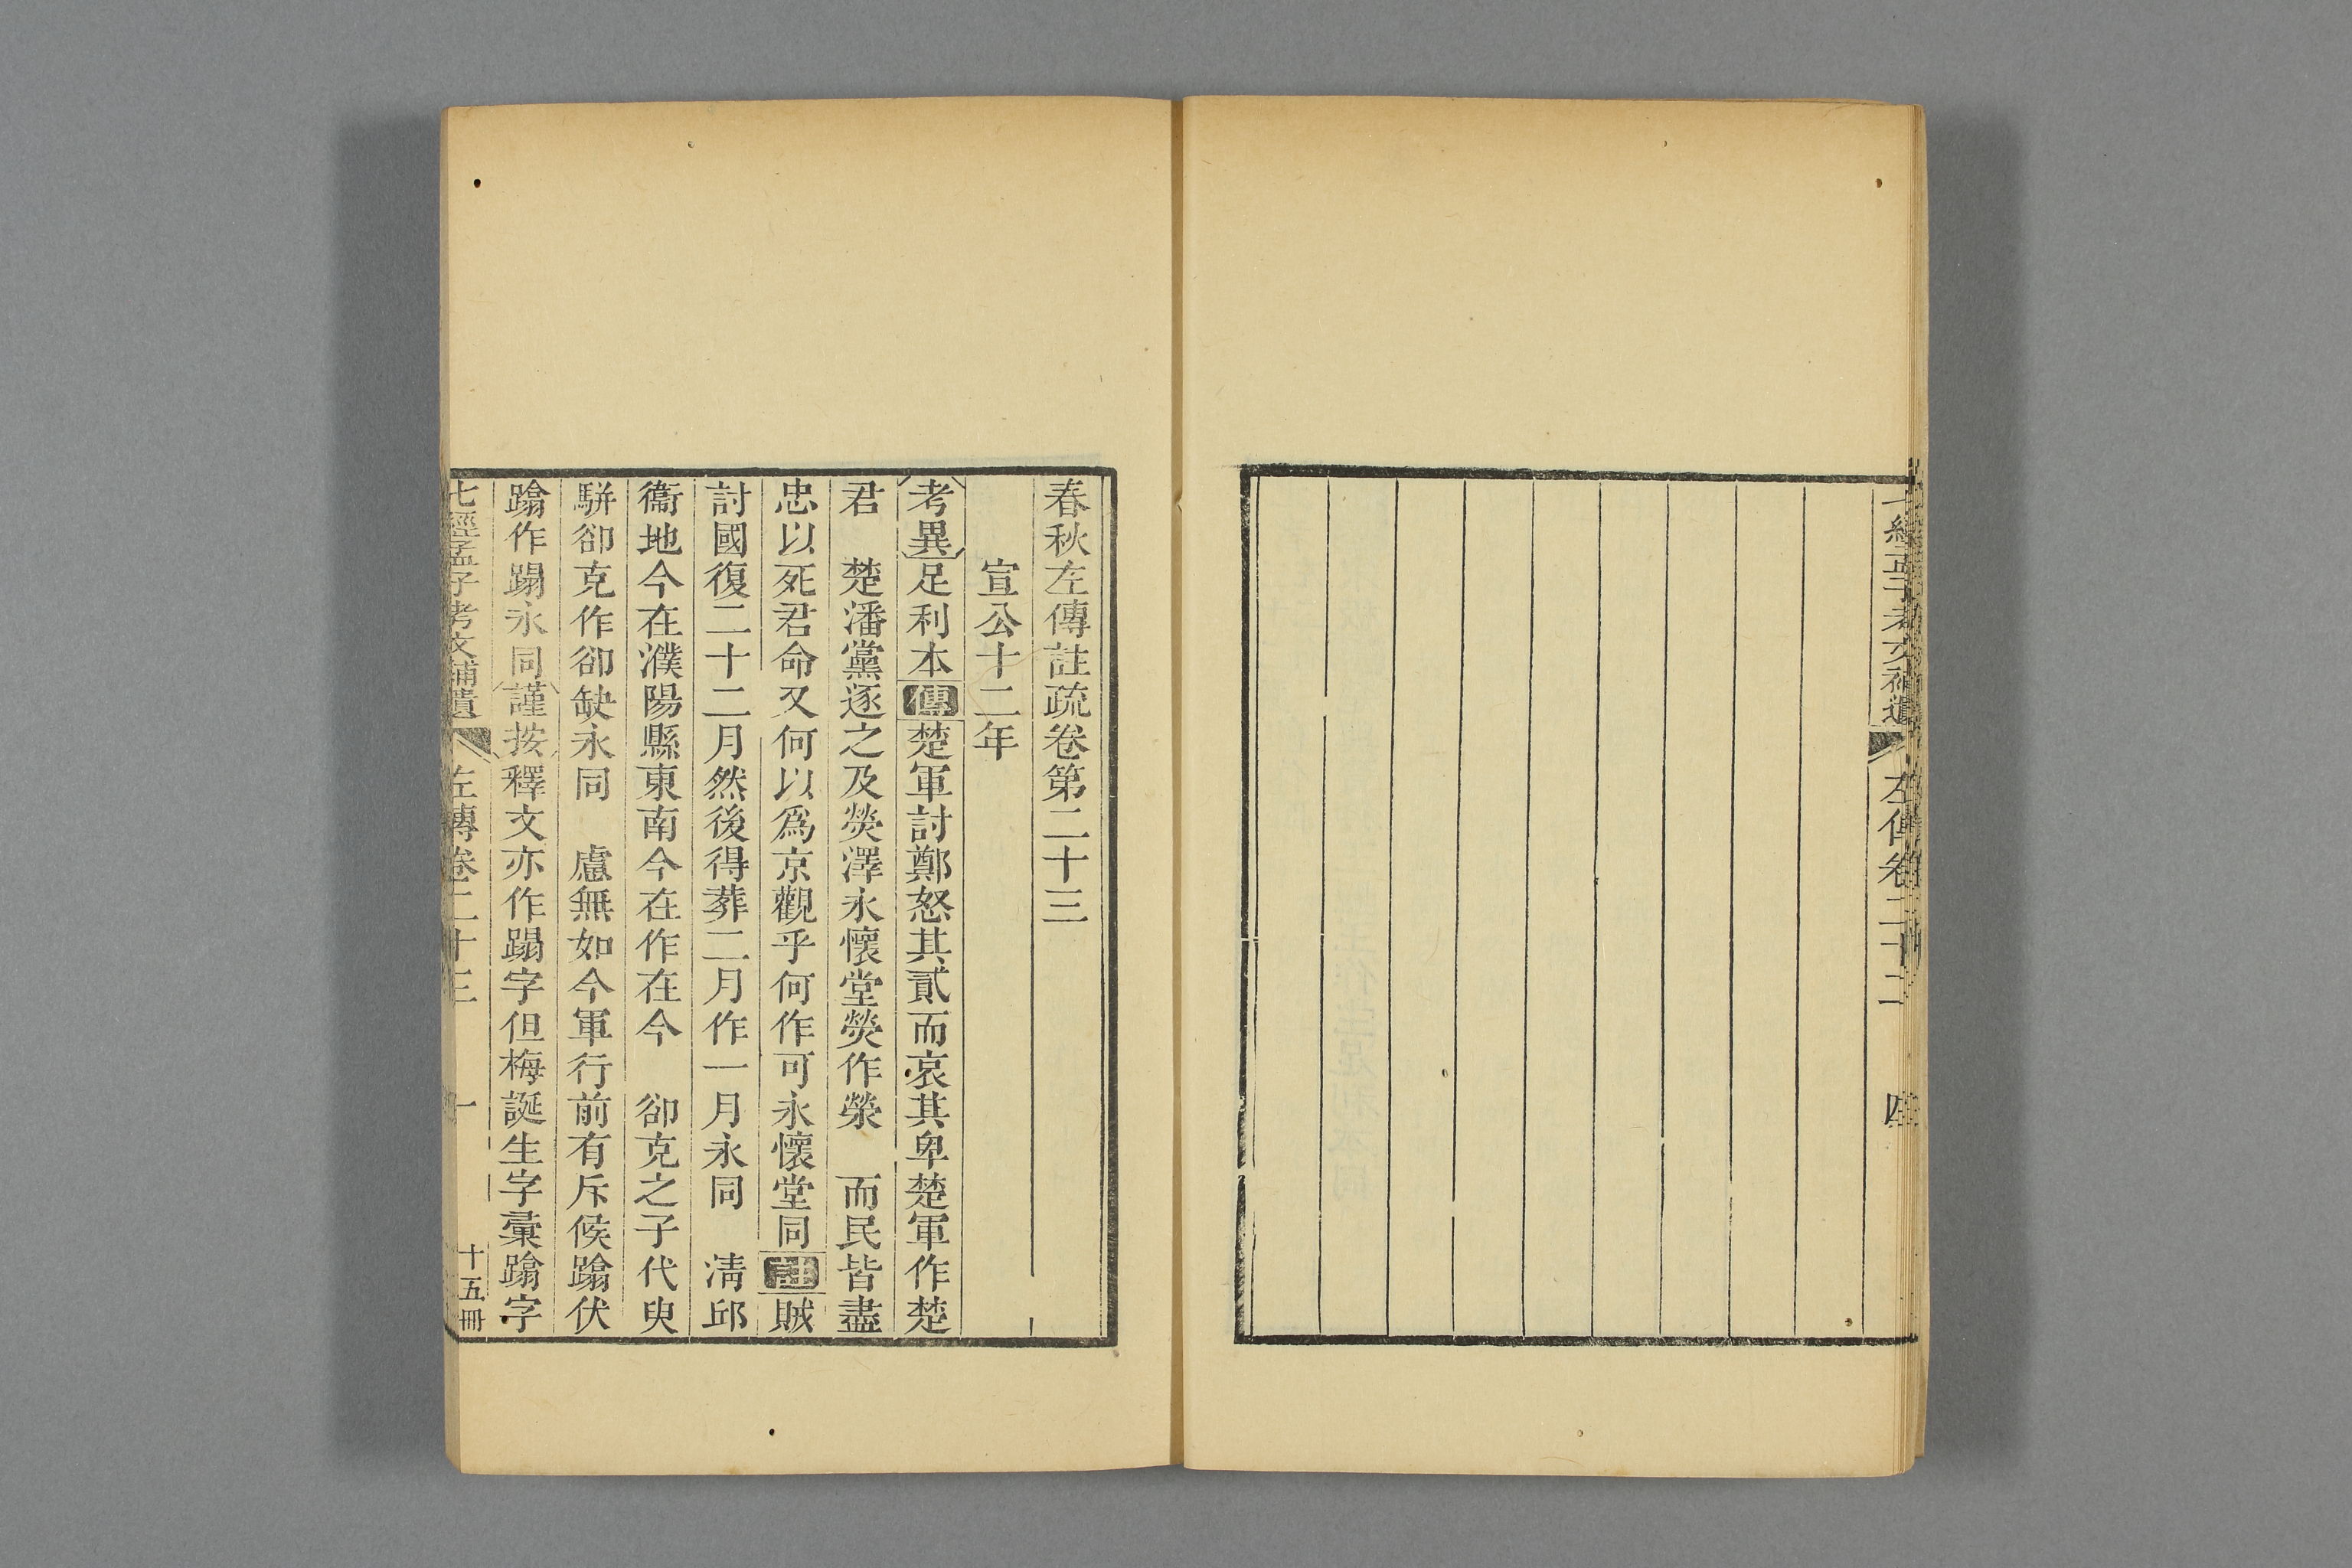 七經孟子考文補遺 左傳卷二十二 四
春秋左傳註疏卷第二十三
宣公十二年
考異足利本傳楚軍討鄭怒其貳而哀其卑楚軍作楚
君 楚潘黨逐之及熒澤永懷堂熒作滎 而民皆盡
忠以死君命又何以爲京觀乎何作可永懷堂同註賊
討國復二十二月然後得葬二月作一月永同 淸邱
衞地今在濮陽縣東南今在作在今 卻克之子代臾
駢卻克作卻缺永同 慮無如今軍行前有斥候蹹伏
蹹作蹋永同謹按釋文亦作蹋字但梅誕生字彙蹹字
七經孟子考文補遺 左傳卷二十三 一 十五冊